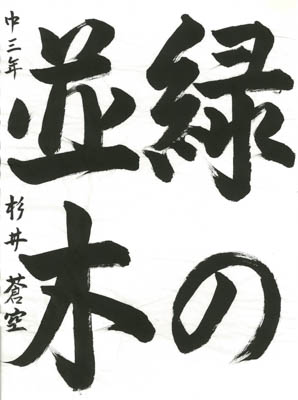 緑の
並木
中三年 杉井 蒼空